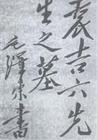 袁吉六先
生之墓
毛泽东书